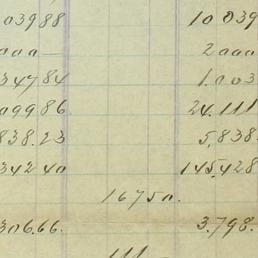 03988 10 039
2000
34784 1.003
09986 24.111
838.23 5,838
34240 145.428
16750.
306.66. 3.798.